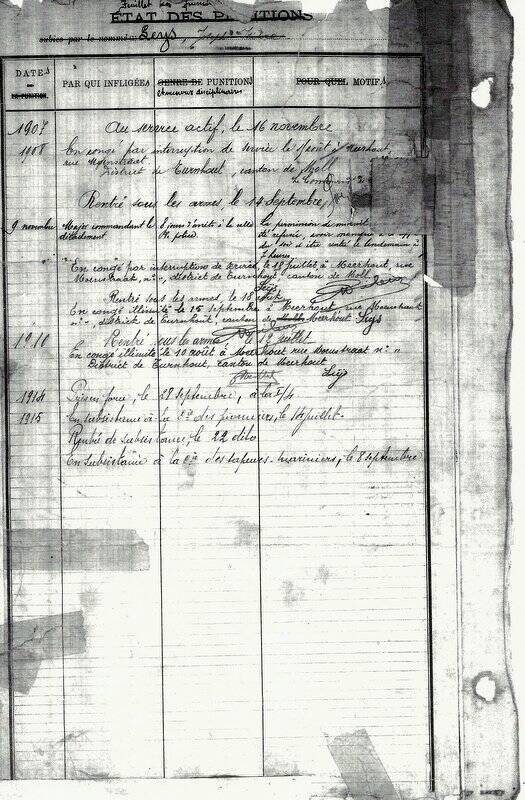 ÉTAT DES PUNITIONS
subies par le nommé Seys,
DATES DE LA PUNITION
PAR QUI INFLIGÉES
GENRE DE PUNITIONS
disciplinaires
POUR QUEL MOTIF
1907 Au service actif, le 16 novembre
1908 En congé par interruption de service le à Meerhout,
rue
District de Turnhout, canton de Moll
Rentré sous les armes, le 14 Septembre,
9 novembre Major commandant le 8 jours d'arrêts à la salle La permission de minuit
détachement. de police. refusée, avoir manqué à
du soir et être rentré le lendemain à
7 heures.
En congé par interruption de service, le 18 juillet, à Meerhout, rue
n° „, district de Turnhout, canton de Moll.
Seys
Rentré sous les armes, le 18 août
En congé illimité le 15 septembre à Meerhout, rue
n° „, district de Turnhout, canton de Meerhout Seys
1910 Rentré sous les armes le juillet
En congé illimité le 10 août à Meerhout rue n° „
District de Turnhout, canton de Meerhout
Seys
1914 le 28 septembre, à la I/4
1915 En subsistance à la Cie des pionniers, le 14 juillet
Rentré de subsistance, le 22 dito
En subsistance à la Cie des sapeurs-mariniers, le 8 septembre